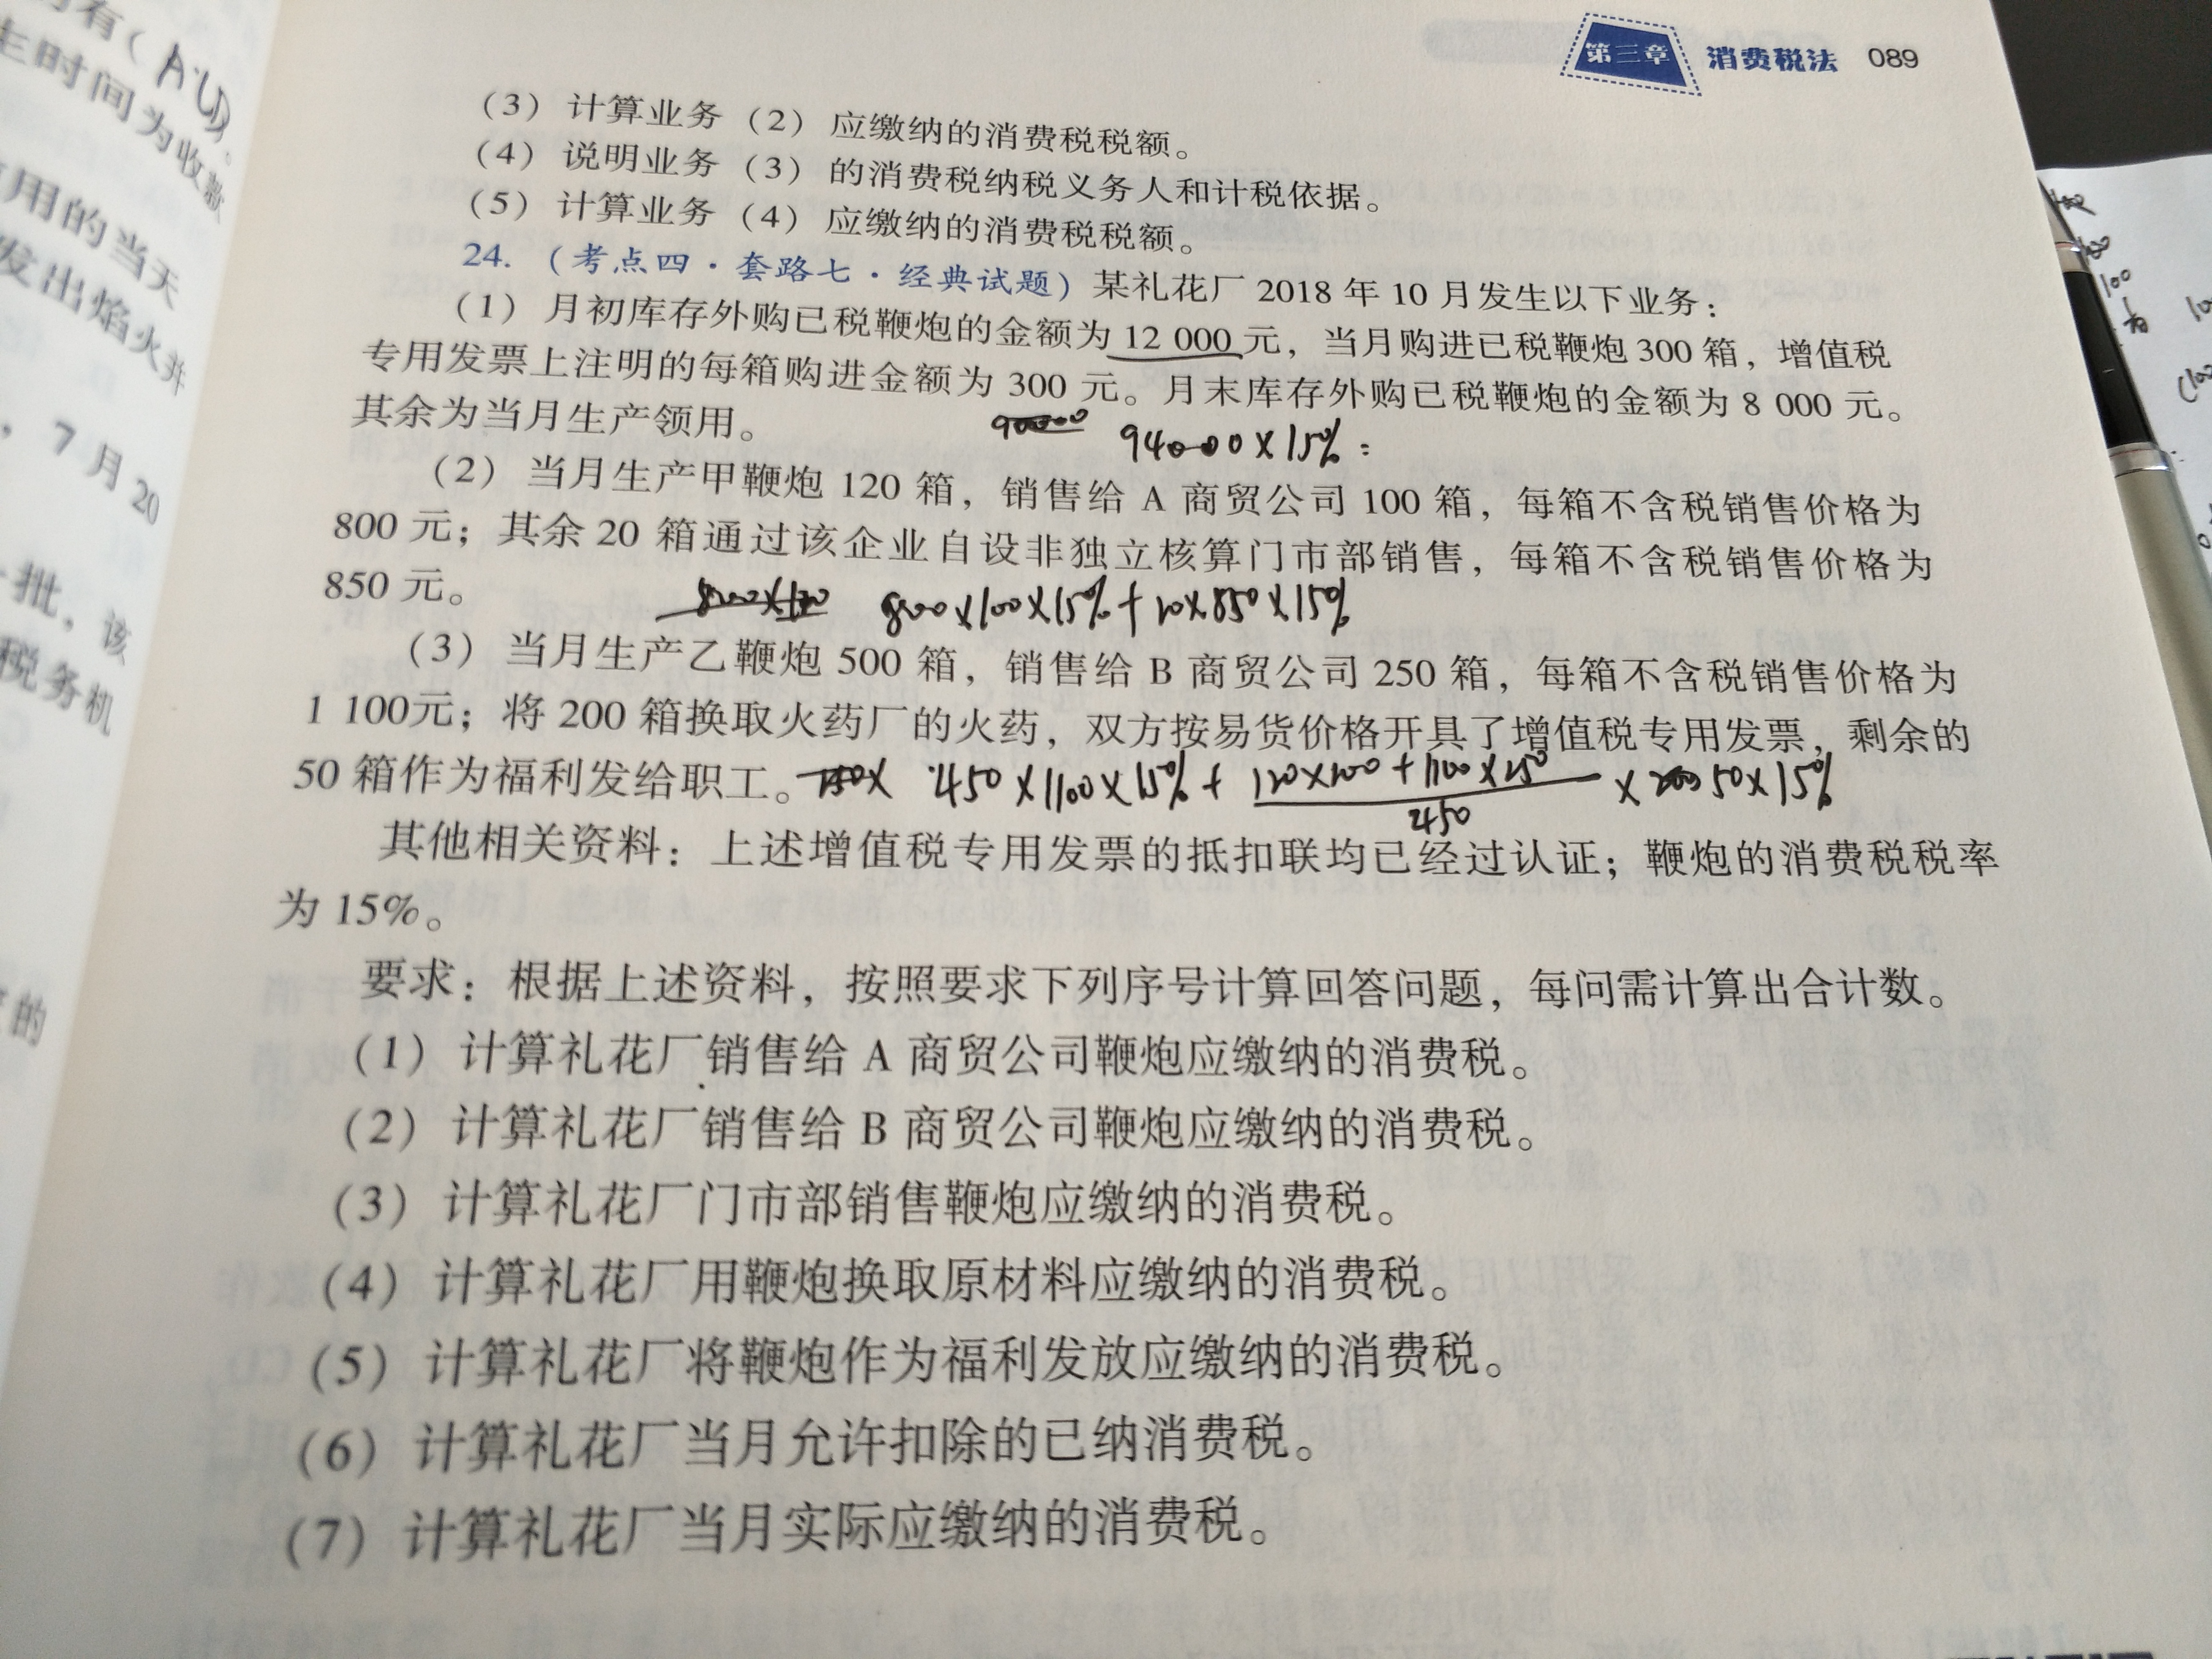 第三章 消费税法 089
有（A
生时间为收款
用的当天
发出焰火并
，7月20
批，该
税务机
的
（3）计算业务（2）应缴纳的消费税税额。
（4）说明业务（3）的消费税纳税义务人和计税依据。
（5）计算业务（4）应缴纳的消费税税额。
24.（考点四·套路七·经典试题）某礼花厂2018年10月发生以下业务：
（1）月初库存外购已税鞭炮的金额为12 000元，当月购进已税鞭炮300箱，增值税
专用发票上注明的每箱购进金额为300元。月末库存外购已税鞭炮的金额为8 000元。
其余为当月生产领用。
90000 94000×15%=
（2）当月生产甲鞭炮120箱，销售给A商贸公司100箱，每箱不含税销售价格为
800元；其余20箱通过该企业自设非独立核算门市部销售，每箱不含税销售价格为
850元。
800×100×15%+20×850×15%
（3）当月生产乙鞭炮500箱，销售给B商贸公司250箱，每箱不含税销售价格为
1 100元；将200箱换取火药厂的火药，双方按易货价格开具了增值税专用发票，剩余的
50箱作为福利发给职工。
450×1100×15%+
450
×50×15%
其他相关资料：上述增值税专用发票的抵扣联均已经过认证；鞭炮的消费税税率
为15%。
要求：根据上述资料，按照要求下列序号计算回答问题，每问需计算出合计数。
（1）计算礼花厂销售给A商贸公司鞭炮应缴纳的消费税。
（2）计算礼花厂销售给B商贸公司鞭炮应缴纳的消费税。
（3）计算礼花厂门市部销售鞭炮应缴纳的消费税。
（4）计算礼花厂用鞭炮换取原材料应缴纳的消费税。
（5）计算礼花厂将鞭炮作为福利发放应缴纳的消费税。
（6）计算礼花厂当月允许扣除的已纳消费税。
（7）计算礼花厂当月实际应缴纳的消费税。